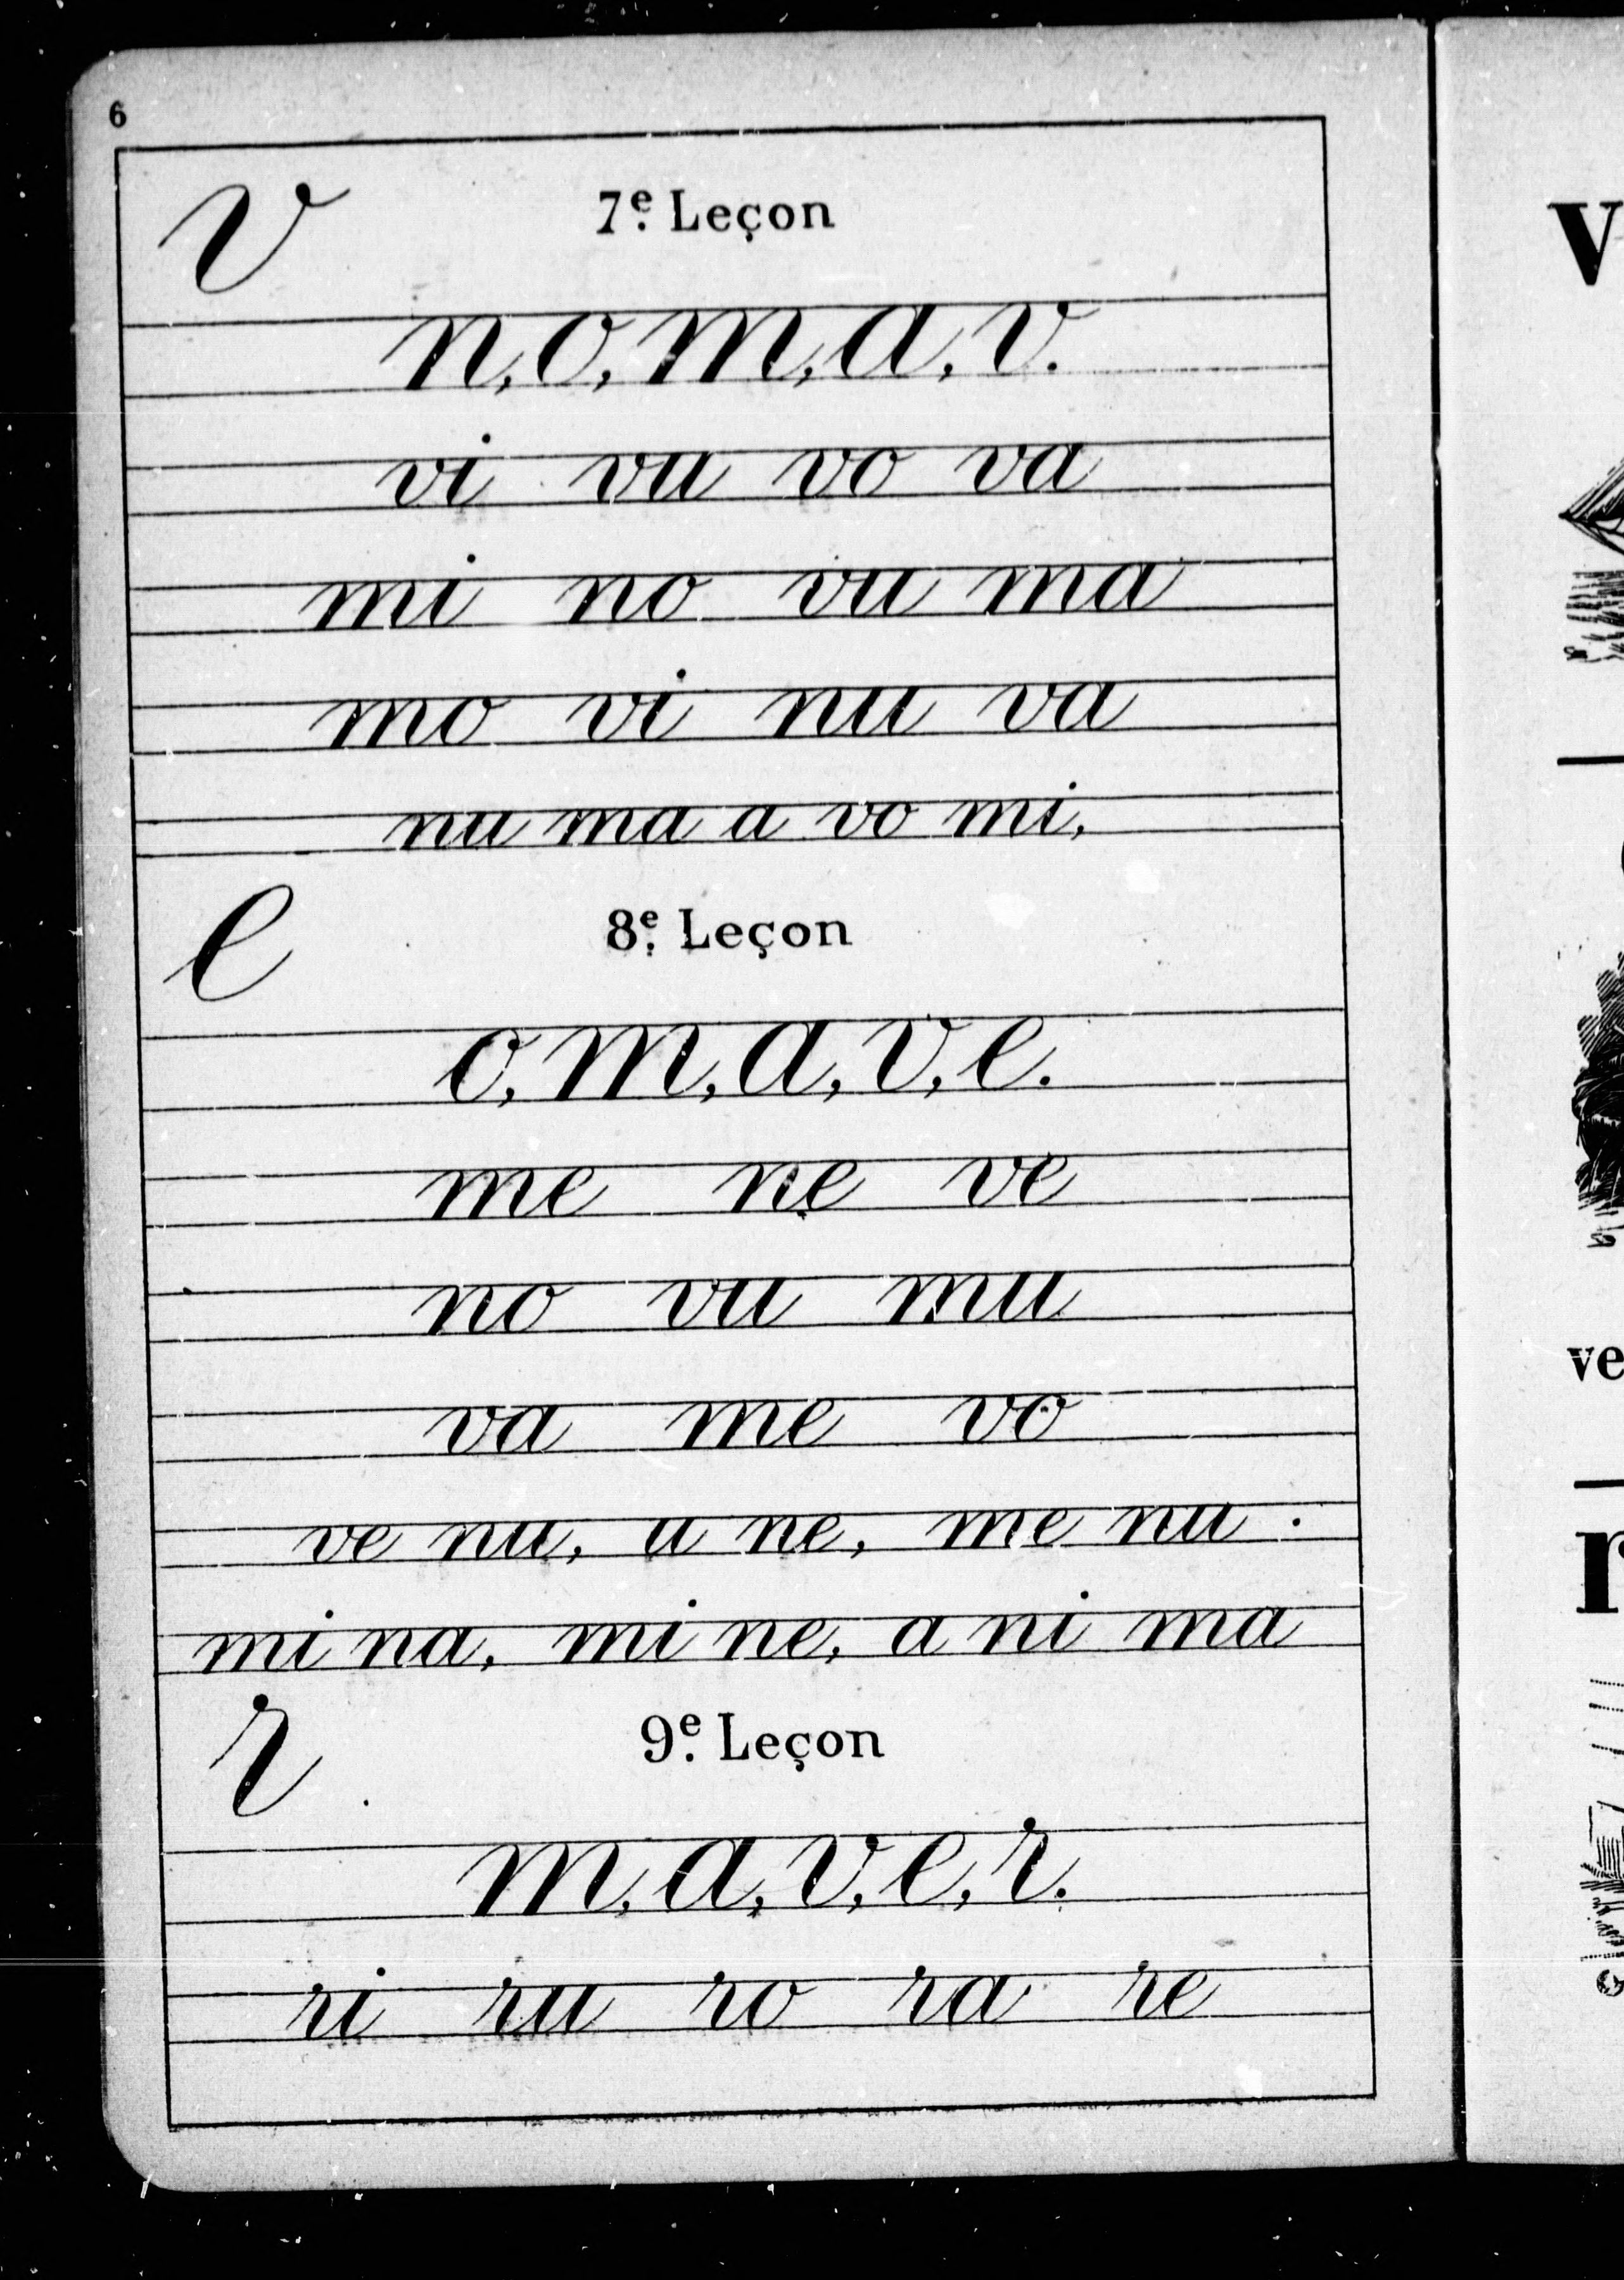 6
v 7e. Leçon
n, o, m, a, v.
vi vu vo va
mi no vu ma
mo vi nu va
nu ma a vo mi,
e 8e. Leçon
o, m, a, v, e.
me ne ve
no vu mu
va me vo
ve nu, u ne, me nu.
mi na, mi ne, a ni ma
r 9e. Leçon
m, a, v, e, r.
ri ru ro ra re
v
ve
r